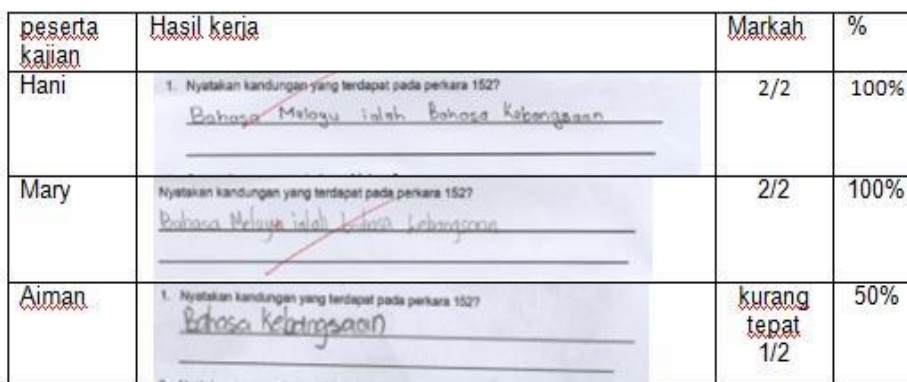 peserta kajian Hasil kerja Markah %
Hani 1. Nyatakan kandungan yang terdapat pada perkara 152? 2/2 100%
Bahasa Melayu ialah Bahasa Kebangsaan
Mary Nyatakan kandungan yang terdapat pada perkara 152? 2/2 100%
Bahasa Melayu ialah bahasa kebangsaan
Aiman 1. Nyatakan kandungan yang terdapat pada perkara 152? kurang tepat 1/2 50%
Bahasa Kebangsaan